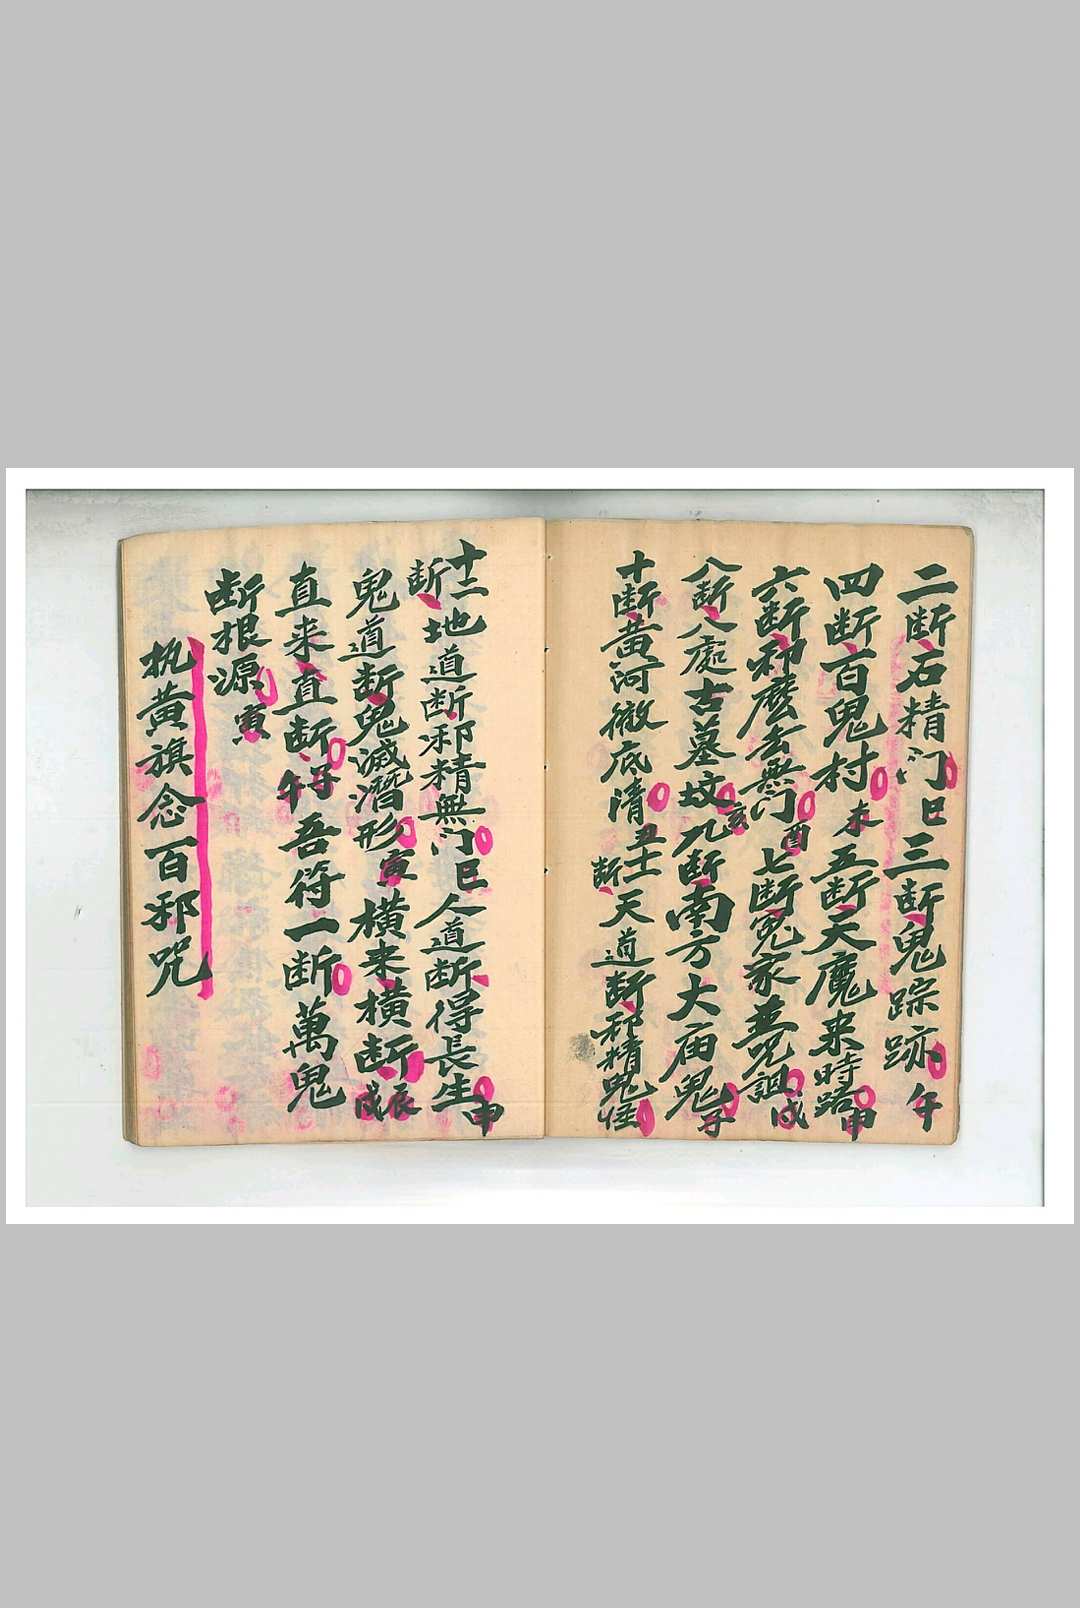 二断石精门巳三断鬼踪跡午
四断百鬼村未五断天魔来時路申
六断邪魔去無门酉七断冤家並咒詛戌
八断八處古墓坟亥九断南方大庙鬼子
十断黄河徹底清丑十一断天道断邪精鬼怪
十二断地道断邪精無门巳人道断得長生申
鬼道断鬼滅潛形寅横来横断辰戌
直来直断子午吾符一断萬鬼
断根源寅
执黄旗念百邪咒